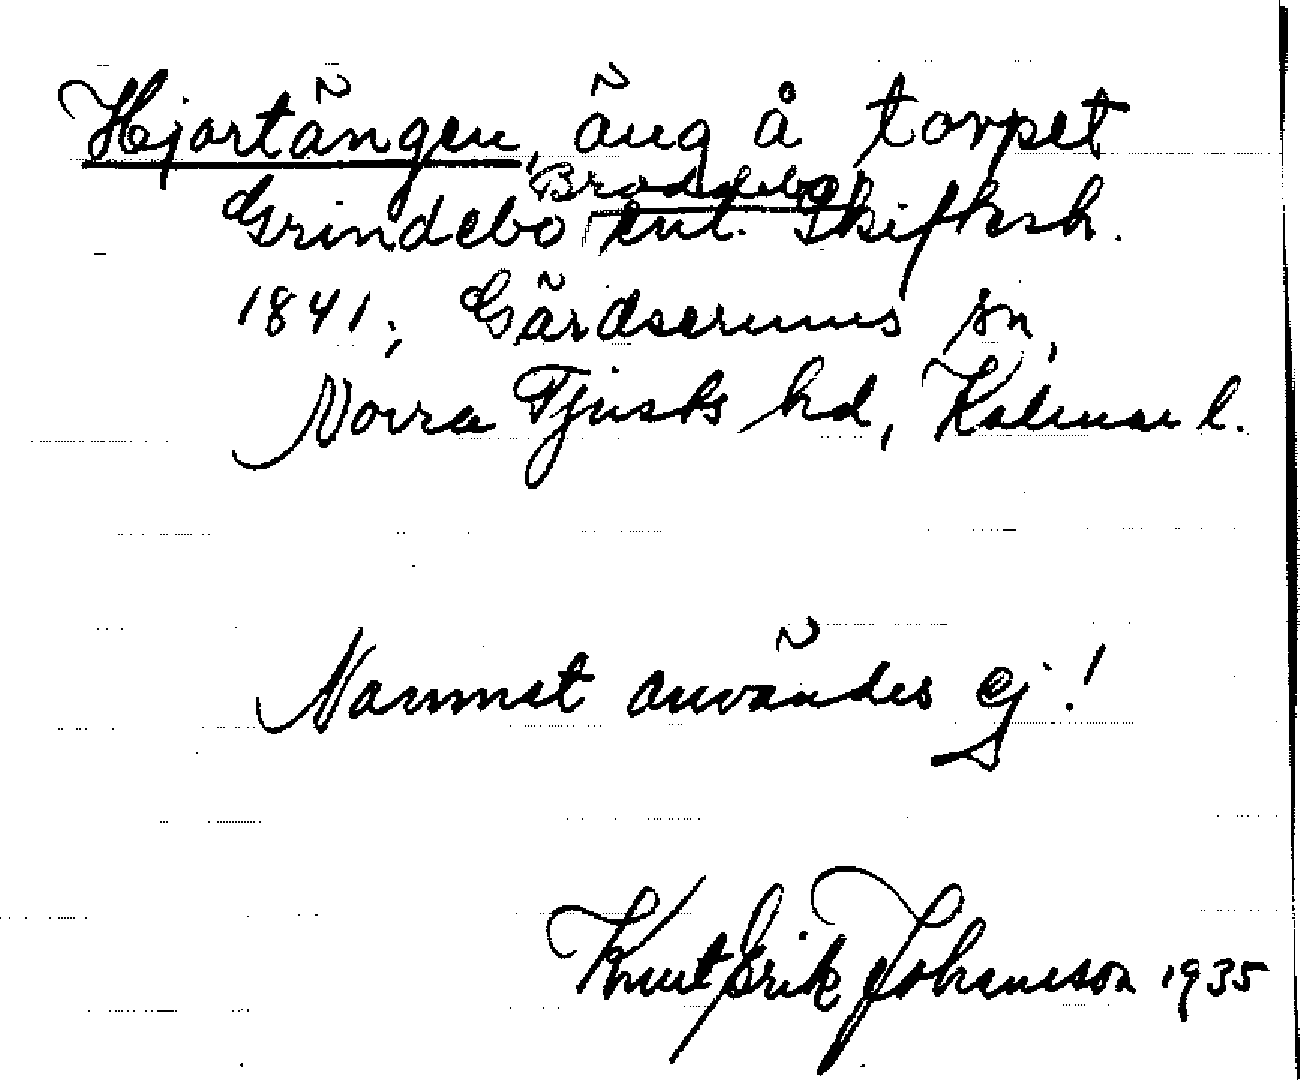 Hjortängen, äng å torpet
Broddebo
Grindebo enl. Skifksh.
1841; Gärdserums sn,
Norra Tjusts hd, Kalmar l.
Namnet användes ej!
Knut Erik Johansson 1935